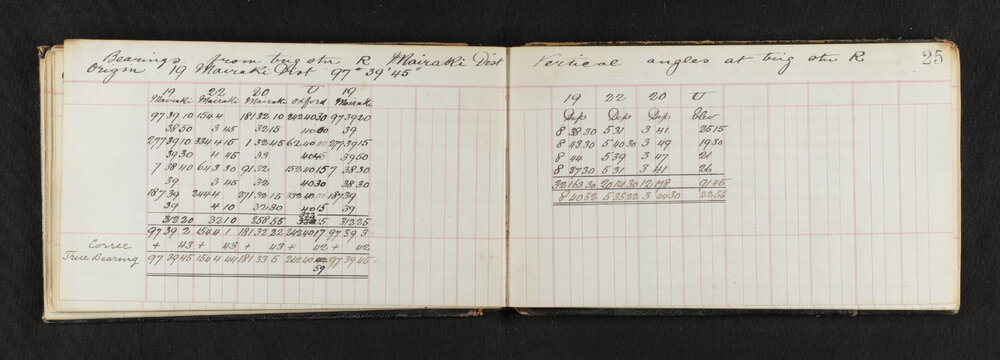 Bearings from trig stn R Mairaki Dist
Origin 19 Mairaki Dist 97° 39' 45"
19 22 20 U 19
Mairaki Mairaki Mairaki Oxford Mairaki
97 39 10 154 4 181 32 10 242 40 30 97 39 20
38 50 3 45 32 15 40 00 39
277 39 10 334 4 15 1 32 45 62 40 00 277 39 15
39 30 4 45 33 40 45 39 50
7 38 40 64 3 30 91 32 152 40 15 7 38 30
39 3 45 32 40 30 38 30
187 39 244 4 271 32 15 332 40 00 187 39
39 4 10 32 30 40 15 39
312 20 32 10 258 55 15 312 25
97 39 2 154 4 1 181 32 22 242 40 17 97 39 3
Correc + 43 + 43 + 43 + 42 + 42
True Bearing 97 39 45 154 4 44 181 33 5 242 40 59 97 39 45
Vertical angles at trig stn R
25
19 22 20 U
Dep Dep Dep Elev
8 38 30 5 31 3 41 25 15
8 43 30 5 40 30 3 49 19 30
8 44 5 39 3 47 21
8 37 30 5 31 3 41 26
32 163 30 20 141 30 12 178 91 45
8 40 52 5 35 22 3 44 30 22 56